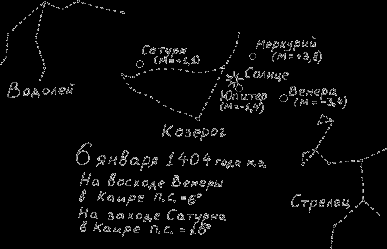 Сатурн
(M=+1,1)
Меркурий
(M=+3,8)
Солнце
Юпитер
(M=-1,4)
Венера
(M=-3,4)
Водолей
Козерог
6 января 1404 года н.э.
На восходе Венеры
в Каире п.с. = 6°
На заходе Сатурна
в Каире п.с. =
Стрелец